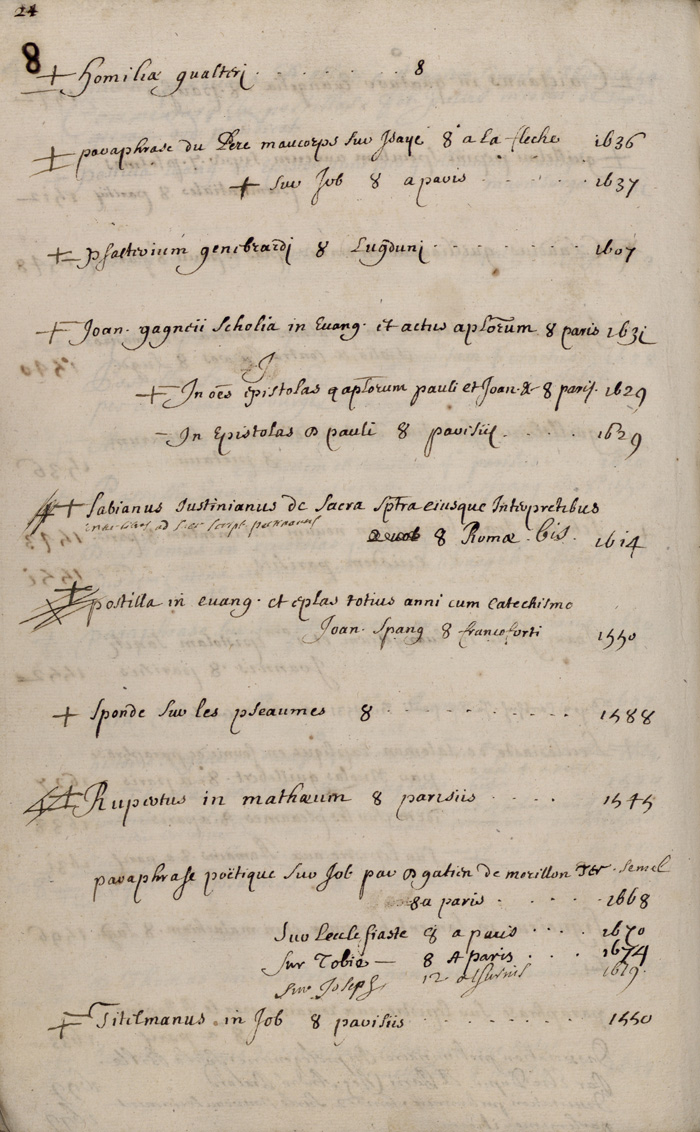 24
8
+ Homiliæ gualteri . . . . . . 8
+ paraphrase du Pere maucorps sur Isaye 8 a la fleche 1636
+ sur Job 8 a paris . . . . 1637
+ psalterium genebrardi 8 Lugduni . . . . . 1607
+ Joan. gagneii scholia in Evang. et actus aplorum 8 paris 1631
+ In oēs epistolas aplorum pauli et Joan. & 8 paris. 1629
- In Epistolas D pauli 8 parisiis . . . . 1629
+ fabianus Justinianus de Sacra Sptra eiusque Interpretibus
8 Romæ. bis. 1614
+ postilla in evang. et eplas totius anni cum catechismo
Joan. Spang 8 francoforti 1550
+ Sponde sur les pseaumes 8 . . . . . . . 1588
+ Rupertus in mathæum 8 parisiis . . . . 1545
paraphrase poëtique sur Job par D gatien de morillon semel
8 a paris . . . . 1668
sur lecclesiaste 8 a paris . . . . 1670
sur Tobie — 8 A paris . . . . 1674
sur Joseph 12 1679.
+ Titelmanus in Job 8 parisiis . . . . . 1550